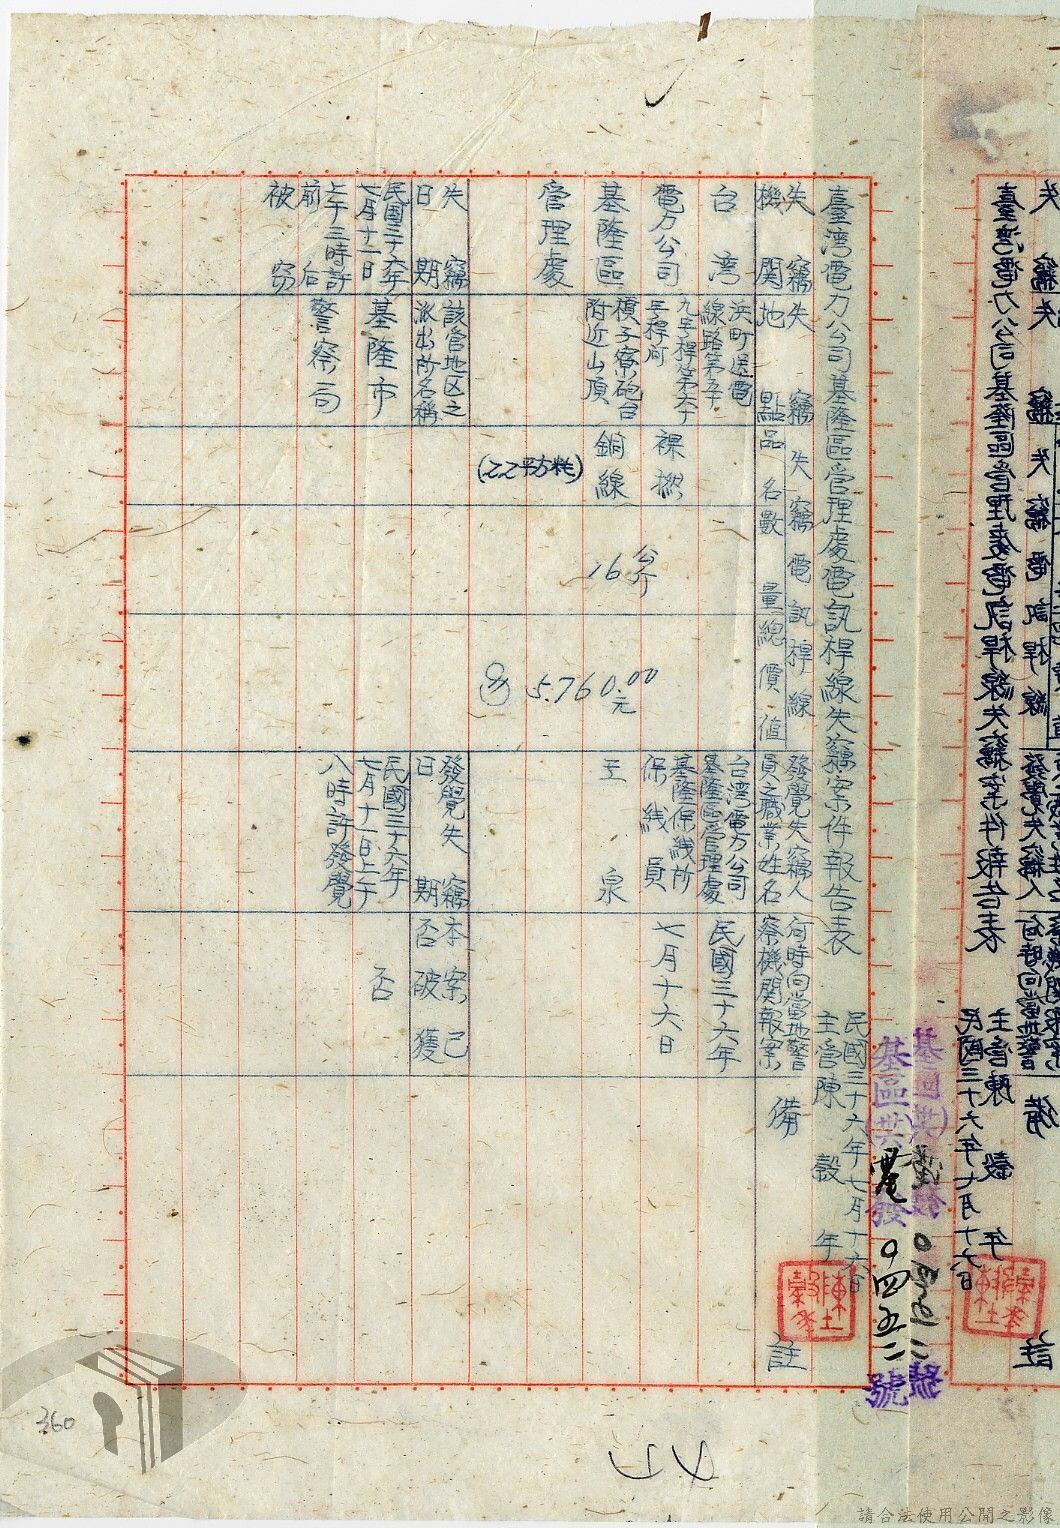 臺灣電力公司基隆區管理處電訊桿線失竊案件報告表
民國三十六年七月十六日
主管陳 毅 年
基區(共)電發0四五二號
失竊機關
失竊地點
失竊電訊桿線
品名
數量
總價值
發覺失竊人
員之職業姓名
何時向當地警
察機關報案
備註
台灣
電力公司
基隆區
管理處
浜町送電
線路第五十
九号桿第六十
号桿間
槓子寮砲台
附近山頂
裸撚
銅線
(22平方粍)
16公斤
5.760.00元
台湾電力公司
基隆區管理處
基隆保綫所
保綫員
王泉
民國三十六年
七月十六日
失竊
日期
該管地区之
派出所名稱
發覺失竊
日期
本案已
否破獲
民國三十六年
七月十一日
上午三時許
前后
被窃
基隆市
警察局
民國三十六年
七月十一日上午
八時許發覺
否
360
請合法使用公開之影像